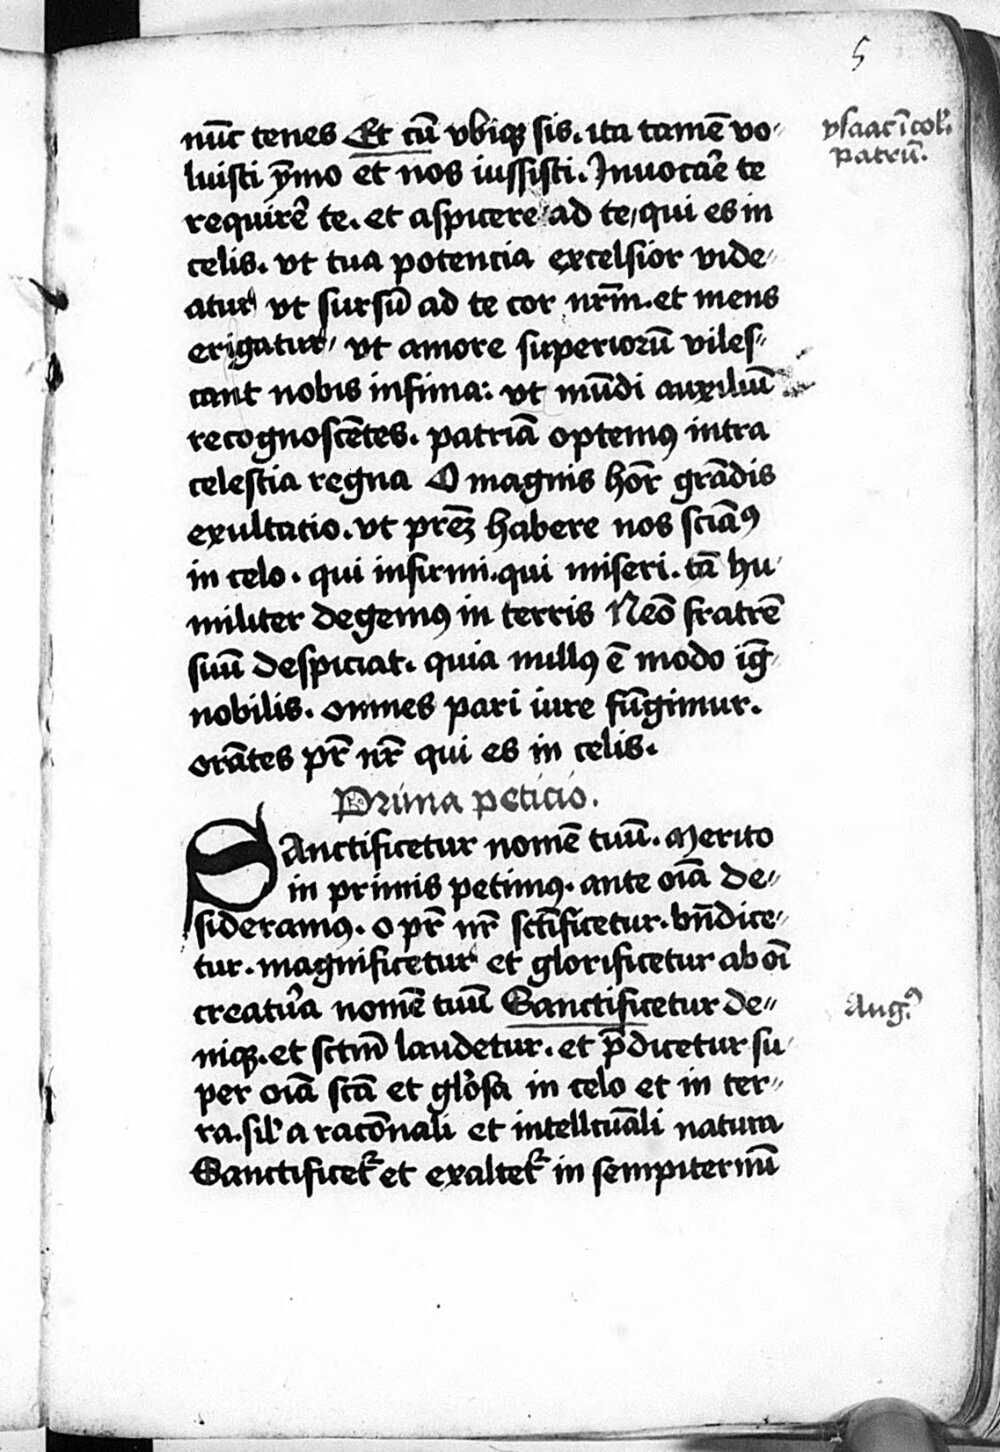 5
nūc tenes Et cū vbiqꝫ sis. ita tamē vo-
luisti ȳmo et nos iussisti. Inuocar̄e te
requirēr te. et aspicere ad te, qui es in
celis. vt tua potencia excelsior vide-
atur vt sursū ad te cor nr̄m. et mens
erigatur, vt amore superiorū viles-
cant nobis infima: vt mūdi auxiliū
recognoscētes. patriā optemꝰ intra
celestia regna O magnis hōr grādis
exultatio. vt prēꝫ habere nos sciāꝰ
in celo. qui infirmi. qui miseri. tā hu-
militer degemꝰ in terris Neo᷑ fratrē
suū despiciat. quia nullꝰ ē modo iḡ-
nobilis. omnes pari iure fūgimur.
orātes pr̄ nr̄ qui es in celis.
Prima peticio.
SAnctificetur nomē tuū. Merito
in primis petimꝰ. ante oīa de-
sideramꝰ. o pr̄ nr̄ sct̄ificetur. bn̄dice-
tur. magnificetur et glorificetur ab oī
creatu᷑a nomē tuū Sanctificetur de-
niqꝫ. et sctm̄ laudetur. et p̄dicetur su-
per oīa sc̄a et glo᷑sa in celo et in ter-
ra. sil' a racōnali et intellcūali natura
Sanctificet᷑ et exaltet᷑ in sempiternū
ysaac ī col'.
patrū.
Aug.ꝰ